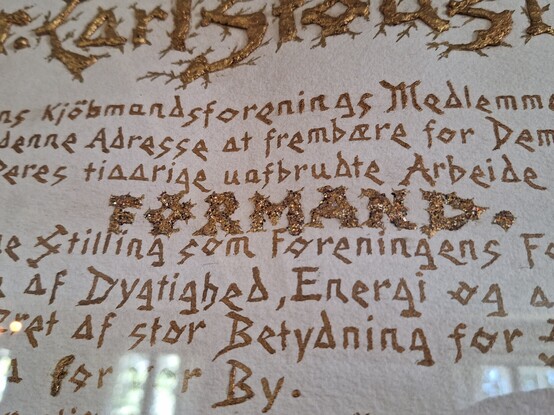 ns Kjöbmandsforenings Medlemme
denne Adresse at frembære for Dem
Deres tiaarige uafbrudte Arbeide
FORMAND.
e Stilling som Foreningens Fo
af Dygtighed, Energi og a
æret af stor Betydning for
for vor By.